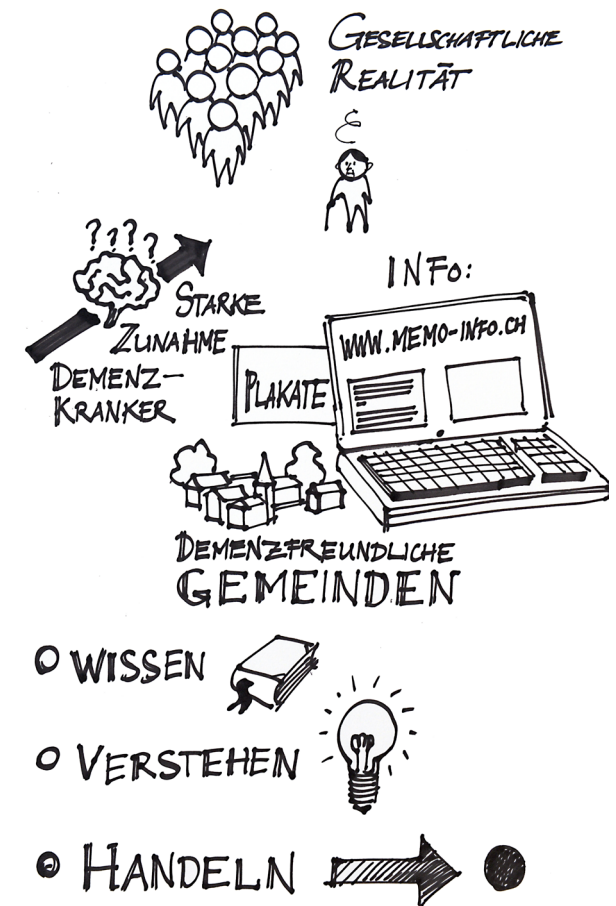 GESELLSCHAFTLICHE
REALITÄT
? ? ? ?
STARKE
ZUNAHME
DEMENZ-
KRANKER
INFO:
WWW.MEMO-INFO.CH
PLAKATE
DEMENZFREUNDLICHE
GEMEINDEN
WISSEN
VERSTEHEN
HANDELN